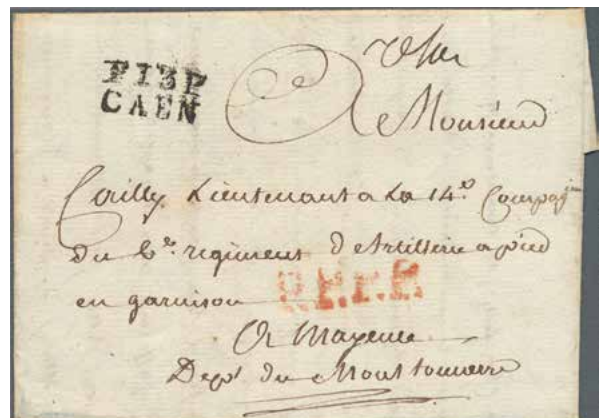 P13P
CAEN
A Monsieur
Coilly Lieutenant a La 14.e Compag.ie
Du 6.e regiment D'Artillerie a pied
en garnison
P.P.P.P.
A Mayence
Dep.t du Mont tonnerre